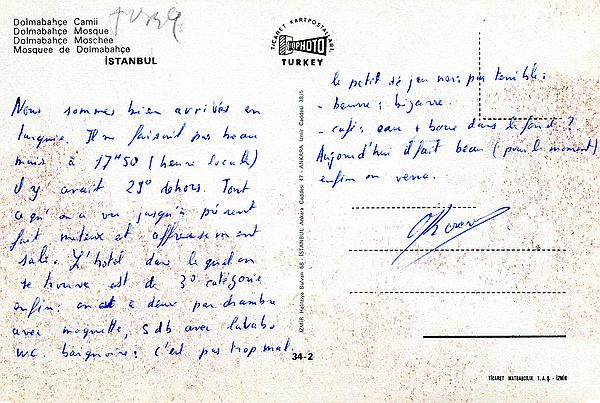 Dolmabahçe Camii
Dolmabahçe Mosque
Dolmabahçe Moschee
Mosquee de Dolmabahçe
İSTANBUL
TICARET KARTPOSTALLARI
COLORPHOTO
TURKEY
Nous sommes bien arrivés en
turquie. Il ne faisait pas beau
mais à 17H50 (heure locale)
il y avait 29° dehors. Tout
ce qu'on a vu jusqu'à présent
fait miteux et affreusement
sale. L'hôtel dans lequel on
se trouve est de 3° catégorie
enfin: on est à deux par chambre
avec moquette, sdb avec lavabo
w.c. baignoire: c'est pas trop mal.
le petit déjeu nais pas terrible:
- beurre: bizarre.
- café: eau + boue dans le fond?
Aujourd'hui il fait beau (pour le moment)
enfin on verra.
İZMİR Halitziya Bulvarı 68 - İSTANBUL Ankara Caddesi 47 - ANKARA İzmir Caddesi 38/5
34-2
TİCARET MATBAACILIK T.A.Ş. - İZMİR